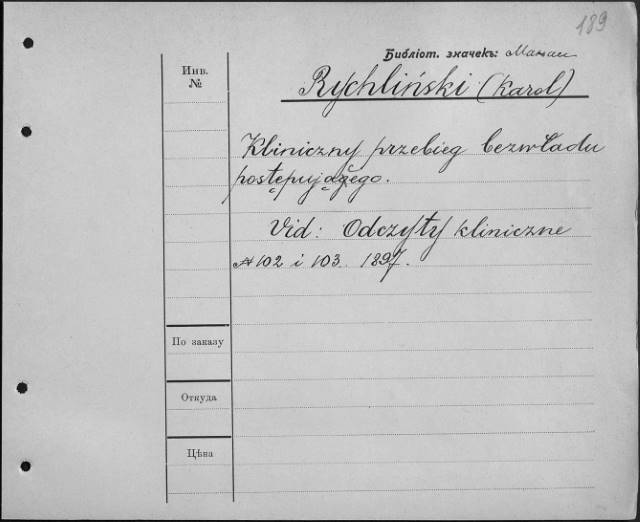 189
Библіот. значекъ:
Инв.
№
Rychliński (Karol)
Kliniczny przebieg bezwładu
postępującego.
Vid: Odczyty kliniczne
№ 102 i 103. 1897.
По заказу
Откуда
Цѣна